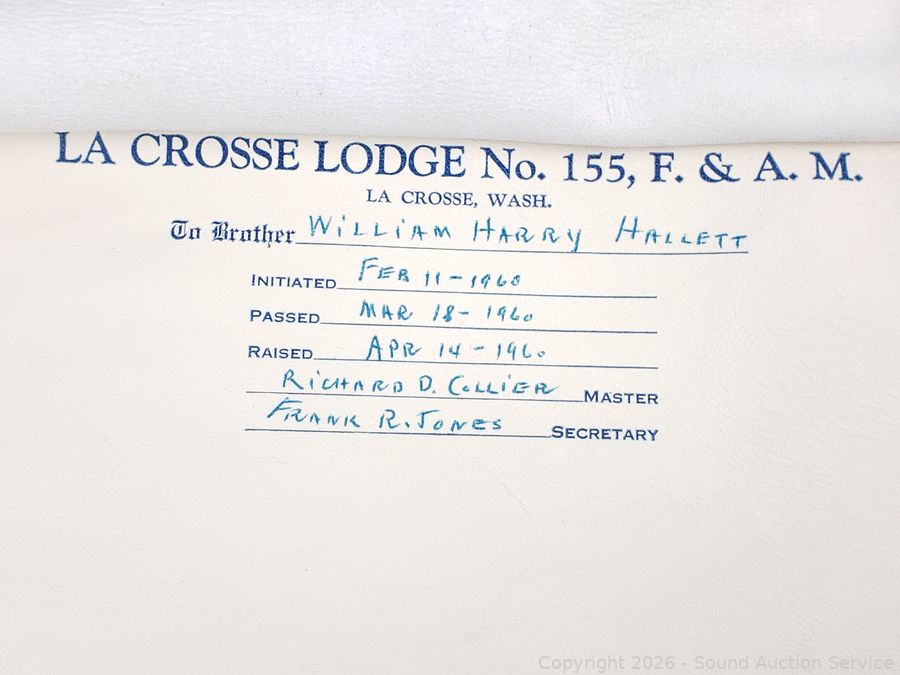 LA CROSSE LODGE No. 155, F. & A. M.
LA CROSSE, WASH.
To Brother William Harry Hallett
INITIATED Feb 11-1960
PASSED Mar 18-1960
RAISED Apr 14-1960
Richard D. Collier MASTER
Frank R. Jones SECRETARY
Copyright 2026 - Sound Auction Service